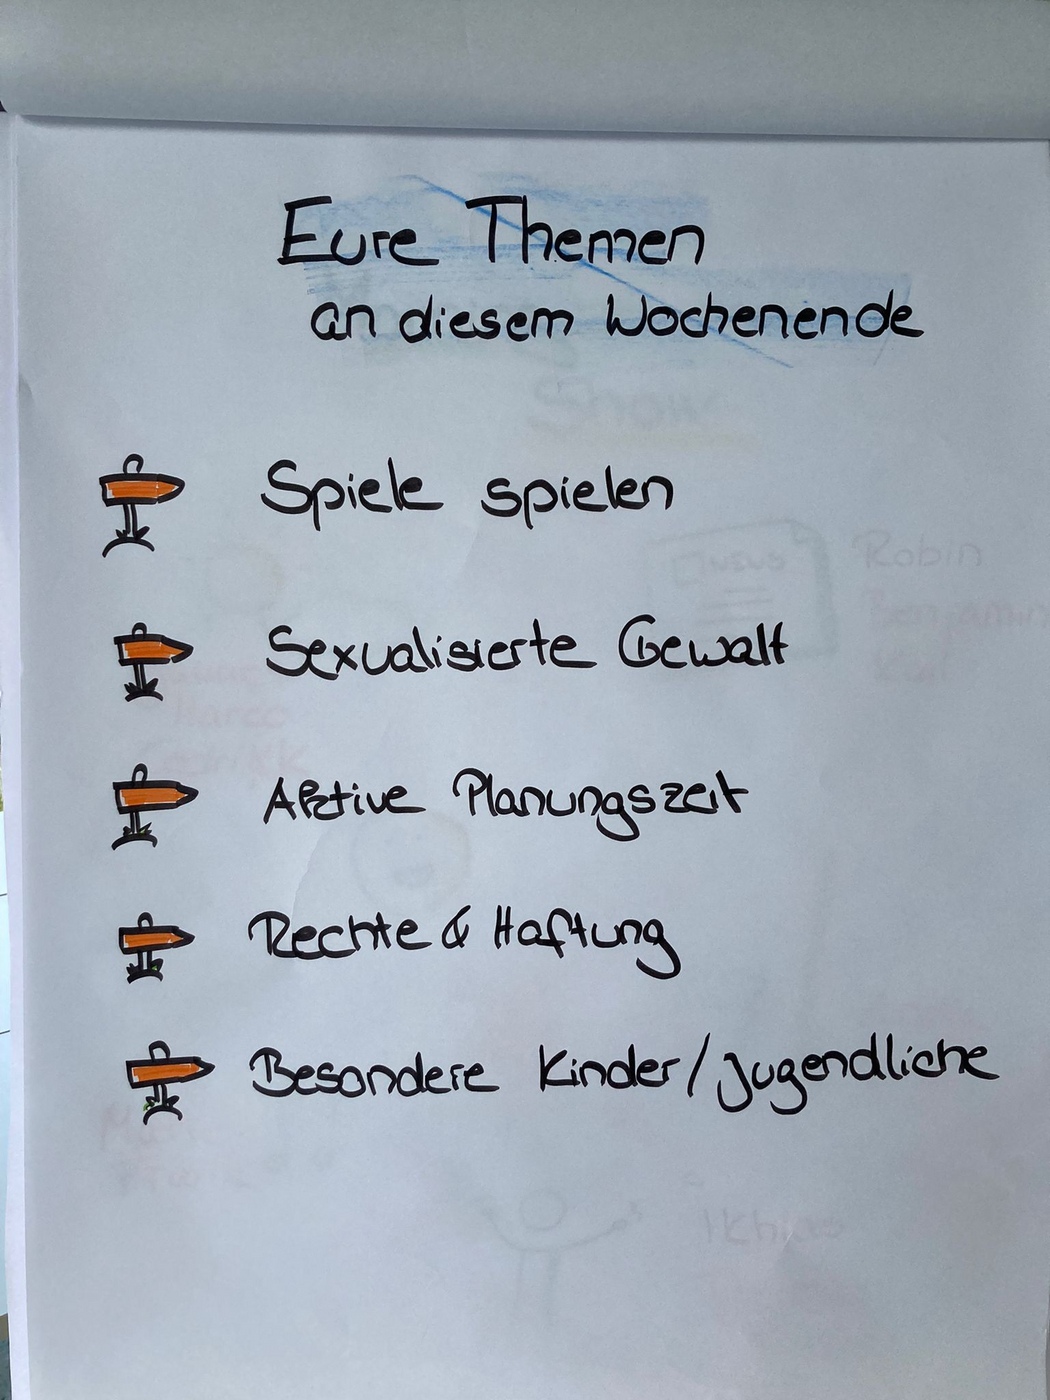 Eure Themen
an diesem Wochenende
Spiele spielen
Sexualisierte Gewalt
Aktive Planungszeit
Rechte & Haftung
Besondere Kinder/Jugendliche
Show
Robin